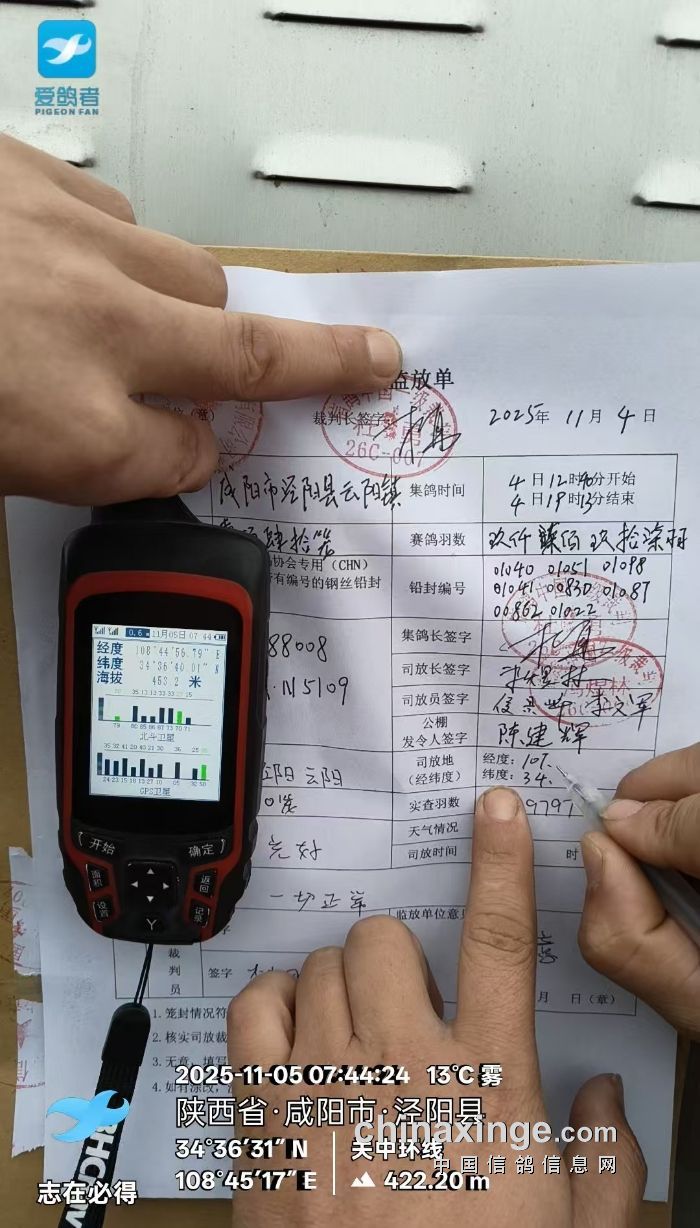 爱鸽者
PIGEON FAN
监放单
裁判长签字
2025年 11月 4日
26C-007
咸阳市泾阳县云阳镇
集鸽时间
4日12时 分开始
4日19时 分结束
肆拾笼
赛鸽羽数
玖仟 佰玖拾柒羽
协会专用（CHN）
有编号的钢丝铅封
铅封编号
01040 01051 01098
01041 00830 01087
00862 01022
集鸽长签字
88008
司放长签字
N5109
司放员签字
公棚
发令人签字
陈建辉
泾阳 云阳
司放地
（经纬度）
经度：107.
纬度：34.
实查羽数
9797
完好
天气情况
司放时间
时
一切正常
监放单位意见
裁
判
员
签字
月 日（章）
1. 笼封情况符
2. 核实司放裁
3. 无意，填写
4. 如有涂改，
0.6
11月05日 07:44
经度 108°44'56.79"E
纬度 34°36'40.01"N
海拔 453.2 米
北斗卫星
GPS卫星
开始
确定
面积
返回
设置
记录
2025-11-05 07:44:24 13℃ 雾
陕西省·咸阳市·泾阳县
34°36'31"N
关中环线
108°45'17"E
422.20m
志在必得
chinaxinge.com
中国信鸽信息网